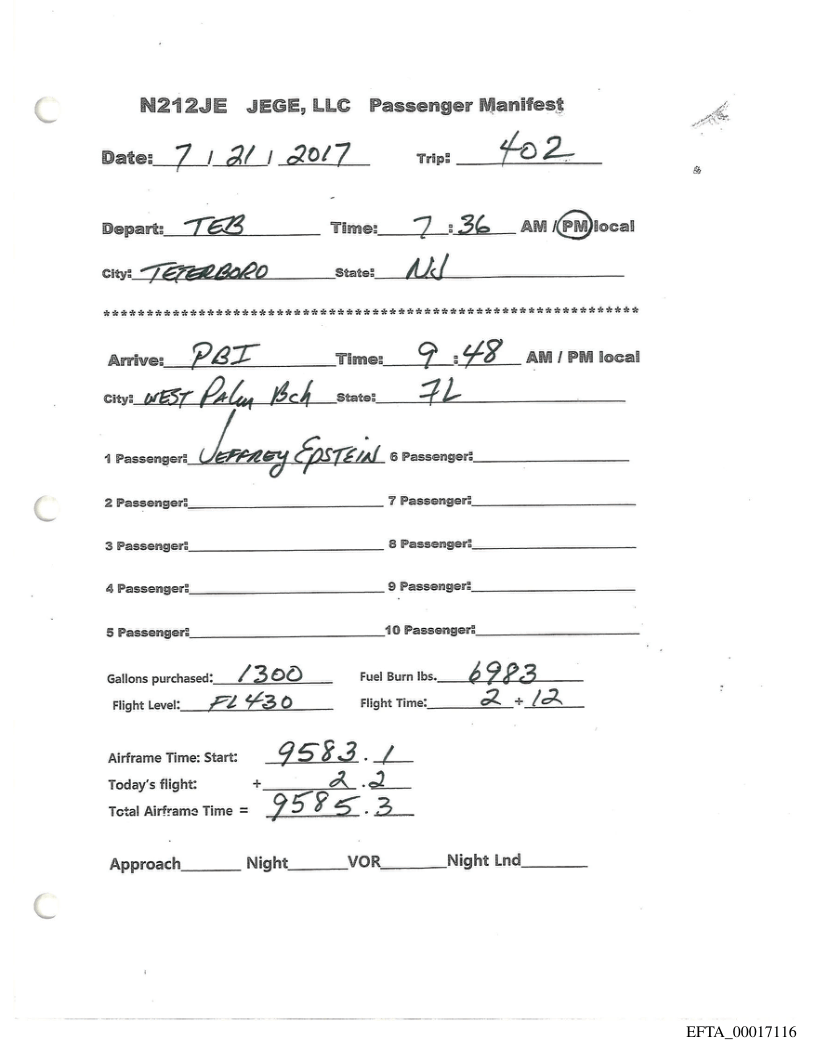 N212JE JEGE, LLC Passenger Manifest
Date: 7 / 21 / 2017 Trip: 402
Depart: TEB Time: 7 : 36 AM / PM local
City: TETERBORO State: NJ
******************************************************************
Arrive: PBI Time: 9 : 48 AM / PM local
City: WEST PALM Bch State: FL
1 Passenger: JEFFREY EPSTEIN 6 Passenger:
2 Passenger: 7 Passenger:
3 Passenger: 8 Passenger:
4 Passenger: 9 Passenger:
5 Passenger: 10 Passenger:
Gallons purchased: 1300 Fuel Burn lbs. 6983
Flight Level: FL 430 Flight Time: 2 + 12
Airframe Time: Start: 9583.1
Today's flight: + 2.2
Total Airframe Time = 9585.3
Approach Night VOR Night Lnd
EFTA_00017116